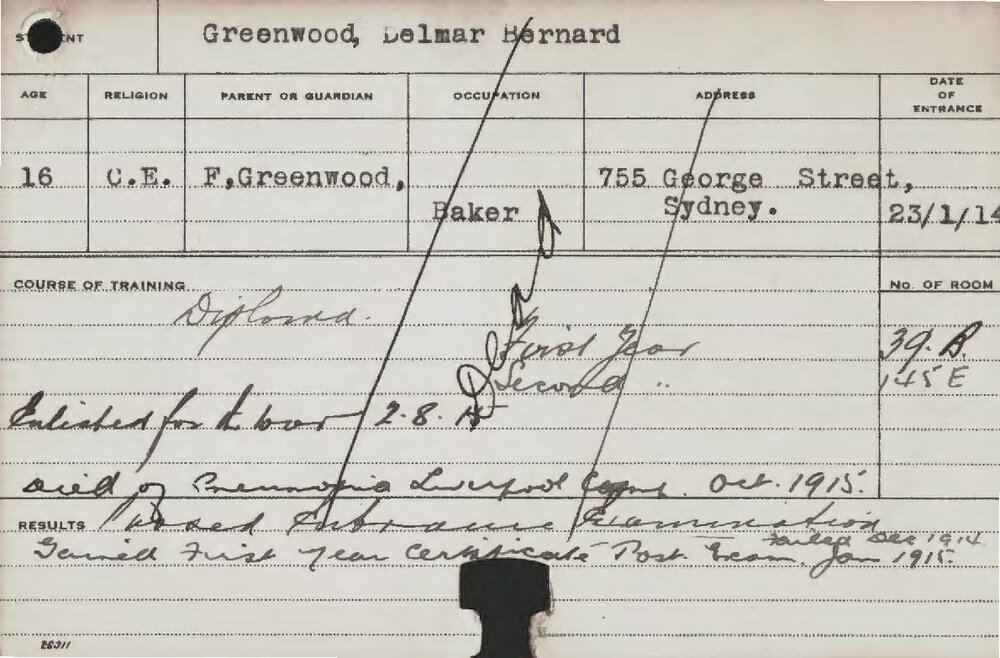 Greenwood, Delmar Bernard
AGE RELIGION PARENT OR GUARDIAN OCCUPATION ADDRESS DATE OF ENTRANCE
16 C.E. F,Greenwood, 755 George Street,
Baker Sydney. 23/1/14
COURSE OF TRAINING No. OF ROOM
Diploma.
Dead
First Year 39.B.
Second " 145 E
Enlisted for the war 2.8.15
died of Pneumonia Liverpool Camp. Oct. 1915.
RESULTS Passed Entrance Examination
Failed Dec 1914
Gained First Year Certificate Post Exam. Jan 1915.
26311